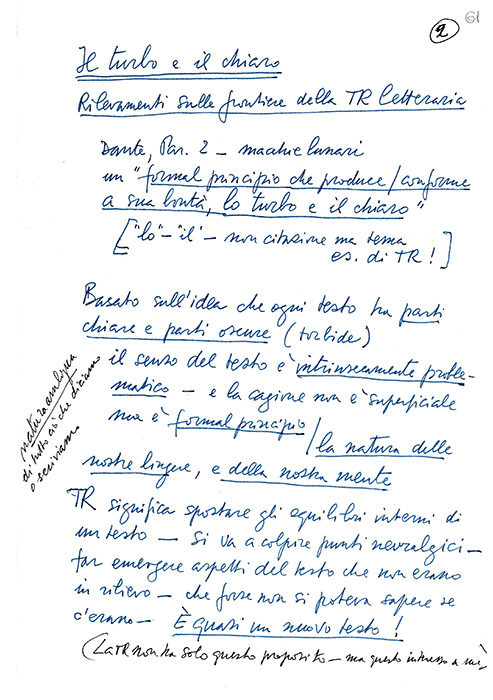 61
2
Il turbo e il chiaro
Rilevamenti sulle frontiere della TR letteraria
Dante, Par. 2 – macchie lunari
un "formal principio che produce / conforme
a sua bontà, lo turbo e il chiaro"
["lo" – "il" – non citazione ma tema
es. di TR !]
Basato sull'idea che ogni testo ha parti
chiare e parti oscure (torbide)
il senso del testo è intrinsecamente proble-
matico – e la cagione non è superficiale
ma è formal principio / la natura delle
nostre lingue, e della nostra mente
natura ambigua
di tutto ciò che diciamo
o scriviamo
TR significa spostare gli equilibri interni di
un testo – si va a colpire punti nevralgici –
far emergere aspetti del testo che non erano
in rilievo – che forse non si poteva sapere se
c'erano – È quasi un nuovo testo !
(La TR non ha solo questo proposito – ma questo interessa a me)